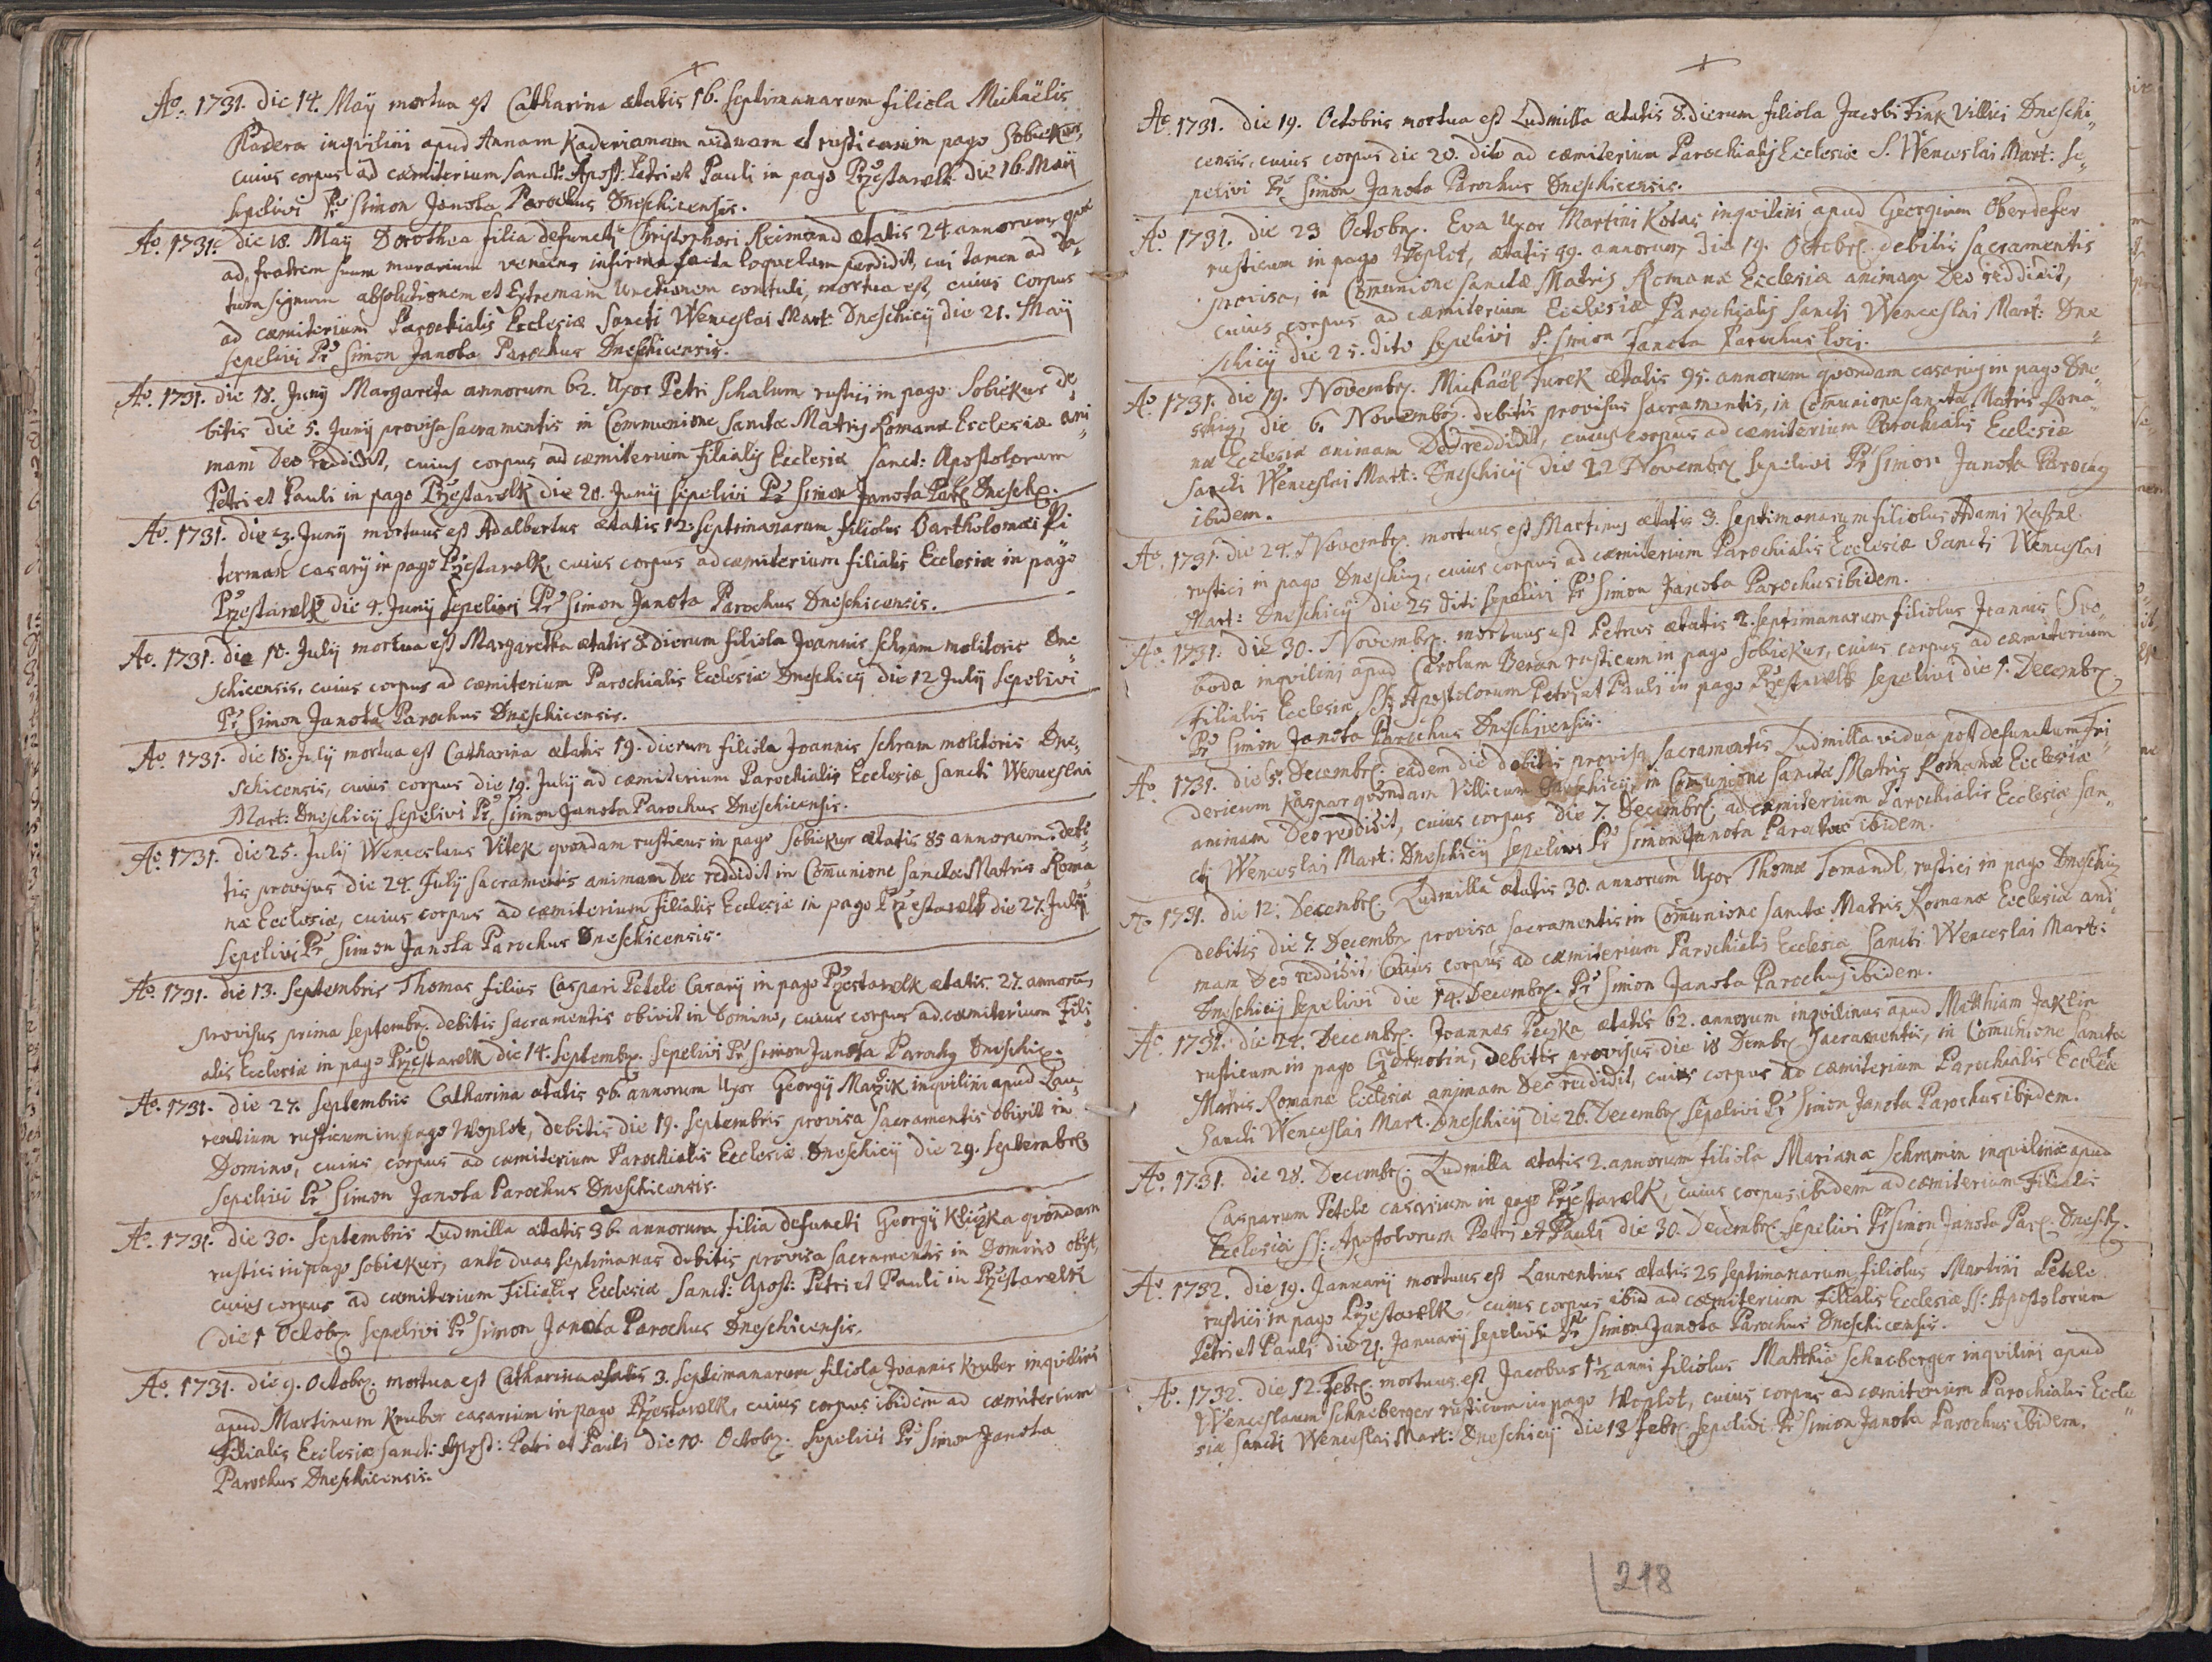 Ao. 1731. die 14. Maÿ mortua est Catharina ætatis 16. septimanarum filiola Michaëlis
Kadera inqvilini apud Annam Kaderianam viduam et rusticam in pago Sobiekur,
cuius corpus ad cæmiterium Sanct: Apost: Petri et Pauli in pago Przestawlk die 16. Maÿ
sepelivi Pr Simon Janota Parochus Dneschicensis.
Ao. 1731. die 18. Maÿ Dorothea filia defuncti Christophori Reimond ætatis 24 annorum, qvæ
ad fratrem suum murarium veniens infirma facta loquelam perdidit, cui tamen ad da„
tum signum absolutionem et Extremam Unctionem contuli, mortua est, cuius corpus
ad cæmiterium Parochialis Ecclesiæ Sancti Wenceslai Mart: Dneschicÿ die 21. Maÿ
sepelivi Pr Simon Janota Parochus Dneschicensis.
Ao. 1731. die 18. Junÿ Margareta annorum 62. Uxor Petri Schalum rustici in pago Sobiekur de„
bitis die 5. Junÿ provisa sacramentis in Communione Sanctæ Matris Romanæ Ecclesiæ ani„
mam Deo reddidit, cuius corpus ad cæmiterium filialis Ecclesiæ Sanct: Apostolorum
Petri et Pauli in pago Przestawlk die 20. Junÿ sepelivi Pr Simon Janota Par: Dnesch.
Ao. 1731. die 3. Junÿ mortuus est Adalbertus ætatis 12. septimanarum filiolus Bartholomæi Pi„
terman casarÿ in pago Przestawlk, cuius corpus ad cæmiterium filialis Ecclesiæ in pago
Przestawlk die 4. Junÿ sepelivi Pr Simon Janota Parochus Dneschicensis.
Ao. 1731. die 10. Julÿ mortua est Margaretha ætatis 8. dierum filiola Joannis Schram molitoris Dne„
schicensis, cuius corpus ad cæmiterium Parochialis Ecclesiæ Dneschicÿ die 12 Julÿ sepelivi
Pr Simon Janota Parochus Dneschicensis.
Ao. 1731. die 18. Julÿ mortua est Catharina ætatis 19. dierum filiola Joannis Schram molitoris Dne„
schicensis, cuius corpus die 19. Julÿ ad cæmiterium Parochialis Ecclesiæ Sancti Wenceslai
Mart: Dneschicÿ sepelivi Pr Simon Janota Parochus Dneschicensis.
Ao. 1731. die 25. Julÿ Wenceslaus Vitek qvondam rusticus in pago Sobiekur ætatis 85 annorum debi„
tis provisus die 24. Julÿ sacramentis animam Deo reddidit in Comunione sanctæ Matris Roma„
næ Ecclesiæ, cuius corpus ad cæmiterium filialis Ecclesiæ in pago Przestawlk die 27. Julÿ
sepelivi Pr Simon Janota Parochus Dneschicensis.
Ao. 1731. die 13. Septembris Thomas filius Caspari Petele Casarÿ in pago Przestawlk ætatis 27. annorū,
provisus prima Septembr. debitis sacramentis obivit in Domino, cuius corpus ad cæmiterium Fili„
alis Ecclesiæ in pago Przestawlk die 14. Septembr. sepelivi Pr Simon Janota Parochus Dneschic.
Ao. 1731. die 27. Septembris Catharina ætatis 56. annorum Uxor Georgÿ Marzik inqvilini apud Lau„
rentium rusticum in pago Woplot, debitis die 19. Septembris provisa sacramentis obivit in
Domino, cuius corpus ad cæmiterium Parochialis Ecclesiæ Dneschicÿ die 29. Septembr.
sepelivi Pr Simon Janota Parochus Dneschicensis.
Ao. 1731. die 30. Septembris Ludmilla ætatis 36. annorum filia defuncti Georgÿ Kliczka qvondam
rustici in pago Sobiekur, ante duas septimanas debitis provisa sacramentis in Domino obÿt,
cuius corpus ad cæmiterium Filialis Ecclesiæ Sanct: Apost: Petri et Pauli in Przestawlk
die 1 Octobr. sepelivi Pr Simon Janota Parochus Dneschicensis.
Ao. 1731. die 9. Octobr. mortua est Catharina ætatis 3. septimanarum filiola Joannis Kruber inqvilini
apud Martinum Kruber casarium in pago Przestawlk, cuius corpus ibidem ad cæmiterium
Filialis Ecclesiæ Sanct: Apost: Petri et Pauli die 10. Octobr. sepelivi Pr Simon Janota
Parochus Dneschicensis.
Ao. 1731. die 19. Octobris mortua est Ludmilla ætatis 8. dierum filiola Jacobi Fink Villici Dneschi„
censis, cuius corpus die 20. dito ad cæmiterium Parochialis Ecclesiæ S. Wenceslai Mart: se„
pelivi Pr Simon Janota Parochus Dneschicensis.
Ao. 1731. die 23 Octobr. Eva Uxor Martini Kotas inqvilini apud Georgium Oberdefer
rusticum in pago Woplot, ætatis 49. annorum, die 19. Octobr. debitis sacramentis
provisa, in Comunione sanctæ Matris Romanæ Ecclesiæ animam Deo reddidit,
cuius corpus ad cæmiterium Ecclesiæ Parochialis Sancti Wenceslai Mart: Dne„
schicÿ die 25. dito sepelivi P. Simon Janota Parochus loci.
Ao. 1731. die 19. Novembr. Michaël Turek ætatis 95. annorum qvondam casarius in pago Dne„
schiz, die 6. Novembr. debitis provisus sacramentis, in Comunione sanctæ Matris Roma„
næ Ecclesiæ animam Deo reddidit, cuius corpus ad cæmiterium Parochialis Ecclesiæ
Sancti Wenceslai Mart: Dneschicÿ die 22 Novembr. sepelivi Pr Simon Janota Parochus
ibidem.
Ao. 1731. die 24. Novembr. mortuus est Martinus ætatis 3. septimanarum filiolus Adami
rustici in pago Dneschiz, cuius corpus ad cæmiterium Parochialis Ecclesiæ Sancti Wenceslai
Mart: Dneschicÿ die 25 diti sepelivi Pr Simon Janota Parochus ibidem.
Ao. 1731. die 30. Novembr. mortuus est Petrus ætatis 2. septimanarum filiolus Joannis Swo„
boda inqvilini apud Carolum Beran rusticum in pago Sobiekur, cuius corpus ad cæmiterium
Filialis Ecclesiæ Apostolorum Petri et Pauli in pago Przestawlk sepelivi die 1. Decembr.
Pr Simon Janota Parochus Dneschicensis.
Ao. 1731. die 5. Decembr. eadem die debitis provisa sacramentis Ludmilla vidua post defunctum Fri„
dericum Kaspar qvondam Villicum Dneschicÿ, in Comunione sanctæ Matris Romanæ Ecclesiæ
animam Deo reddidit, cuius corpus die 7. Decembr. ad cæmiterium Parochialis Ecclesiæ San„
cti Wenceslai Mart: Dneschicÿ sepelivi Pr Simon Janota Parochus ibidem.
Ao. 1731. die 12. Decembr. Ludmilla ætatis 30. annorum Uxor Thomæ Tomandl, rustici in pago Dneschiz
debitis die 7. Decembr. provisa sacramentis in Comunione sanctæ Matris Romanæ Ecclesiæ ani„
mam Deo reddidit, cuius corpus ad cæmiterium Parochialis Ecclesiæ Sancti Wenceslai Mart:
Dneschicÿ sepelivi die 14. Decembr. Pr Simon Janota Parochus ibidem.
Ao. 1731. die 24. Decembr. Joannes Peczka ætatis 62. annorum inqvilinus apud Matthiam Jaklin
rusticum in pago debitis provisus die 18 Dembr. sacramentis, in Comunione sanctæ
Matris Romanæ Ecclesiæ animam Deo reddidit, cuius corpus ad cæmiterium Parochialis Ecclesiæ
Sancti Wenceslai Mart. Dneschicÿ die 26. Decembr. sepelivi Pr Simon Janota Parochus ibidem.
Ao. 1731. die 28. Decembr. Ludmilla ætatis 2. annorum filiola Marianæ Schramin inqvilinæ apud
Casparum Petele casarium in pago Przestawlk, cuius corpus ibidem ad cæmiterium Filialis
Ecclesiæ SS: Apostolorum Petri et Pauli die 30. Decembr. sepelivi Pr Simon Janota Par. Dnesch.
Ao. 1732. die 19. Januarÿ mortuus est Laurentius ætatis 25 septimanarum filiolus Martini Petele
rustici in pago Przestawlk, cuius corpus ibid ad cæmiterium Filialis Ecclesiæ SS: Apostolorum
Petri et Pauli die 21. Januarÿ sepelivi Pr Simon Janota Parochus Dneschicensis.
Ao. 1732. die 12. Febr. mortuus est Jacobus 1½ anni filiolus Matthiæ Schneberger inqvilini apud
Wenceslaum Schneberger rusticum in pago Woplot, cuius corpus ad cæmiterium Parochialis Eccle„
siæ Sancti Wenceslai Mart: Dneschicÿ die 13 Febr. sepelivi Pr Simon Janota Parochus ibidem.
218